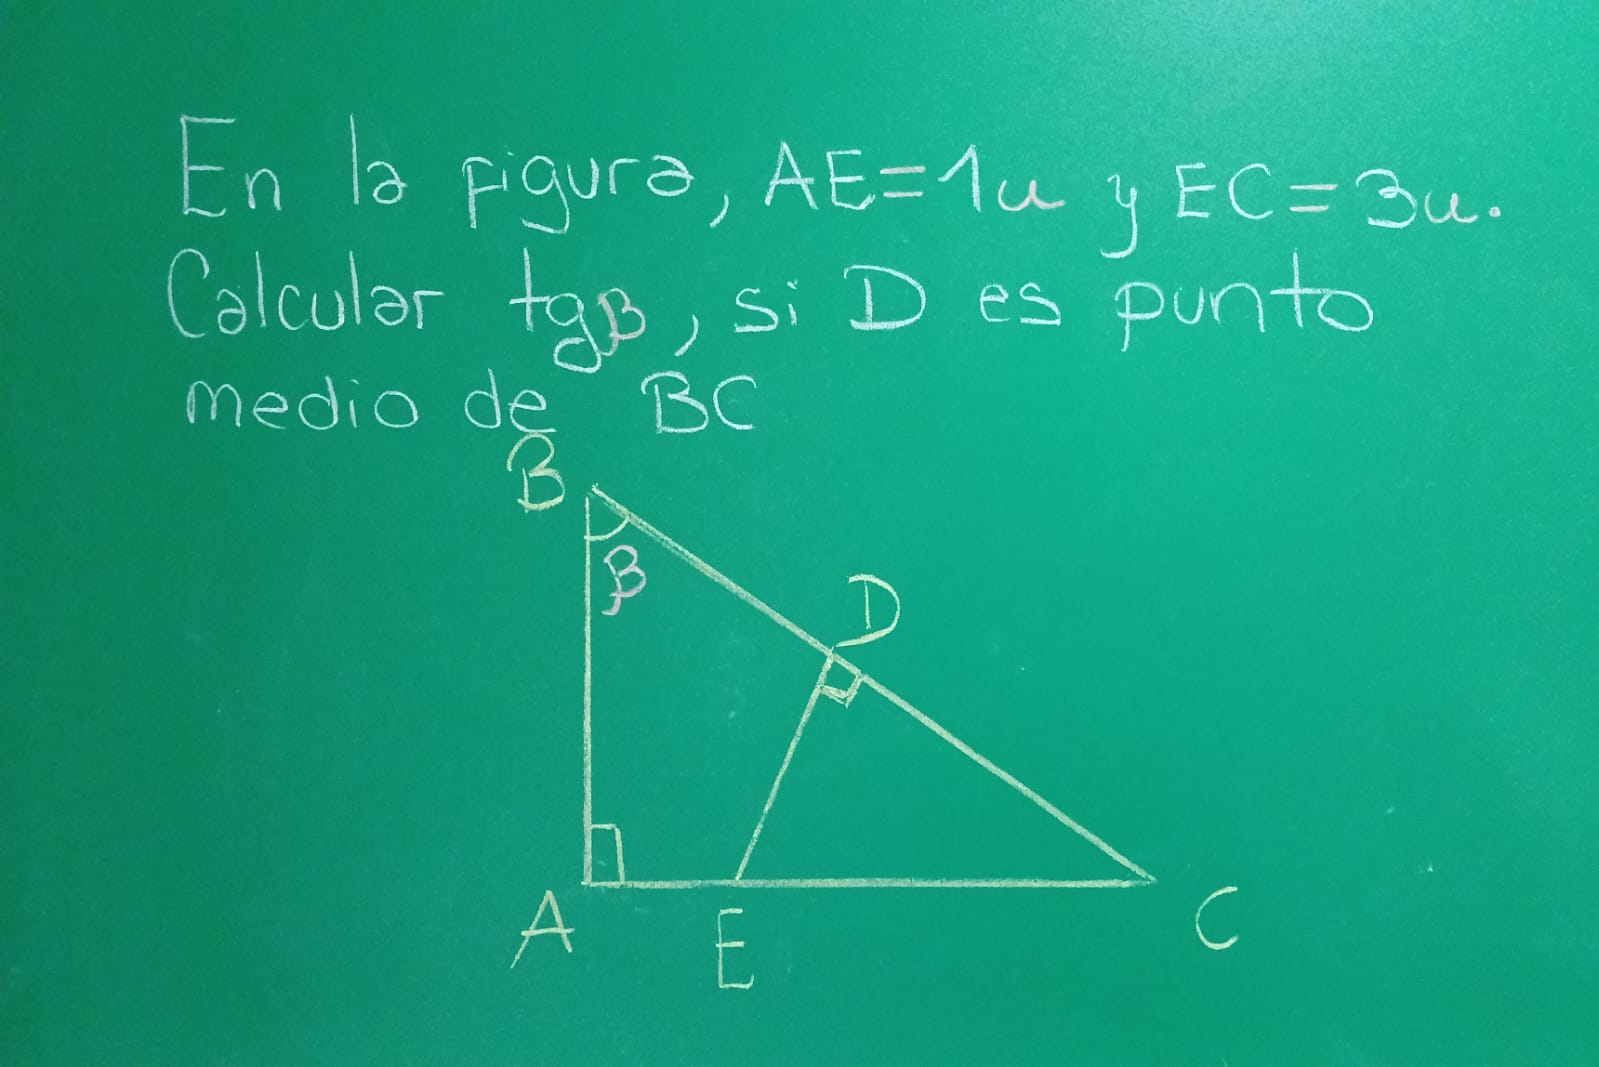 En la figura, AE=1u y EC=3u.
Calcular tgβ, si D es punto
medio de BC
B
β
D
A
E
C